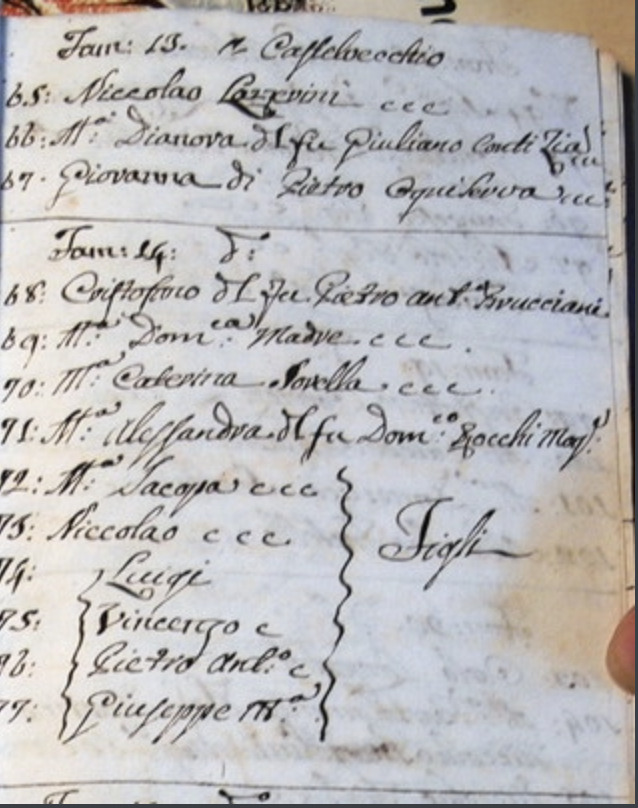 Fam: 13. a Castelvecchio
65: Niccolao Lazzerini c c c
66: M.ª Dianova dl fu Giuliano Conti Zia ccc
67. Giovanna di Pietro ccc
Fam: 14: d.º
68: Cristofano dl fu Pietro ant.º Brucciani
69: M.ª Dom.ca Madre c c c.
70: M.ª Caterina Sorella c c c.
71: M.ª Alessandra dl fu Dom.co Rocchi Mog.
72: M.ª Jacopa c c c
73: Niccolao c c c.
Figli
74: Luigi
75: Vincenzo c
76: Pietro ant.º c
77: Giuseppe M.ª